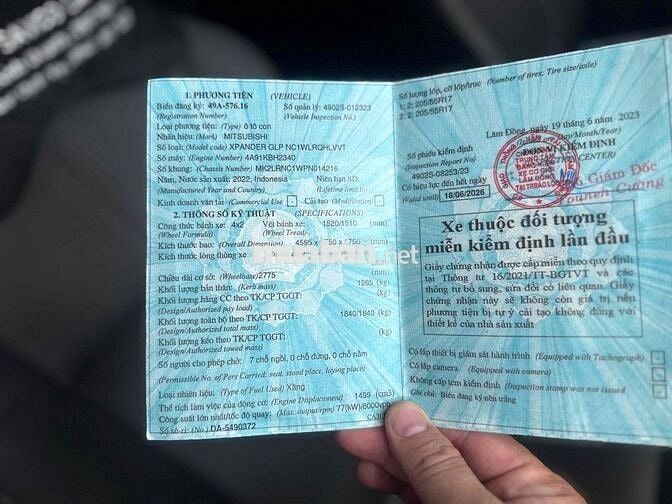 1. PHƯƠNG TIỆN (VEHICLE)
Biển đăng ký: 49A-576.16 Số quản lý: 4902S-012323
(Registration Number) (Vehicle Inspection No.)
Loại phương tiện: (Type) ô tô con
Nhãn hiệu: (Mark) MITSUBISHI
Số loại: (Model code) XPANDER GLP NC1WLRQHLVVT
Số máy: (Engine Number) 4A91KBH2340
Số khung: (Chassis Number) MK2LRNC1WPN014216
Năm, Nước sản xuất: 2022, Indonesia Niên hạn SD:
(Manufactured Year and Country) (Lifetime limit to)
Kinh doanh vận tải (Commercial Use) Cải tạo (Modification)
2. THÔNG SỐ KỸ THUẬT (SPECIFICATIONS)
Công thức bánh xe: 4x2 Vết bánh xe: 1520/1510 (mm)
(Wheel Formula) (Wheel Tread)
Kích thước bao: (Overall Dimension) 4595 x 1750 x 1750 (mm)
Kích thước lòng thùng xe (mm)
Chiều dài cơ sở: (Wheelbase) 2775 (mm)
Khối lượng bản thân: (Kerb mass) 1265 (kg)
Khối lượng hàng CC theo TK/CP TGGT: (kg)
(Design/Authorized pay load)
Khối lượng toàn bộ theo TK/CP TGGT: 1840/1840 (kg)
(Design/Authorized total mass)
Khối lượng kéo theo TK/CP TGGT: (kg)
(Design/Authorized towed mass)
Số người cho phép chở: 7 chỗ ngồi, 0 chỗ đứng, 0 chỗ nằm
(Permissible No. of Pers Carried: seat, stood place, laying place)
Loại nhiên liệu: (Type of Fuel Used) Xăng
Thể tích làm việc của động cơ: (Engine Displacement) 1499 (cm3)
Công suất lớn nhất/tốc độ quay: (Max. output/rpm) 77(kW)/6000vph
Số sê-ri: (No.) DA-5490372
Số lượng lốp, cỡ lốp/trục (Number of tires; Tire size/axle)
1: 2; 205/55R17
2: 2; 205/55R17
Lâm Đồng, ngày 19 tháng 6 năm 2023
(Day/Month/Year)
Số phiếu kiểm định ĐƠN VỊ KIỂM ĐỊNH
(Inspection Report No) CENTER)
4902S-08253/23
Có hiệu lực đến hết ngày
(Valid until) 18/06/2026
TRUNG TÂM
ĐĂNG KIỂM
XE CƠ GIỚI
LÂM ĐỒNG
Giám Đốc
Cường
Xe thuộc đối tượng
miễn kiểm định lần đầu
Giấy chứng nhận được cấp miễn theo quy định
tại Thông tư 16/2021/TT-BGTVT và các
thông tư bổ sung, sửa đổi có liên quan. Giấy
chứng nhận này sẽ không còn giá trị nếu
phương tiện bị tự ý cải tạo không đúng với
thiết kế của nhà sản xuất
Có lắp thiết bị giám sát hành trình (Equipped with Tachograph)
Có lắp camera (Equipped with camera)
Không cấp tem kiểm định (Inspection stamp was not issued)
Ghi chú: Biển đăng ký nền trắng